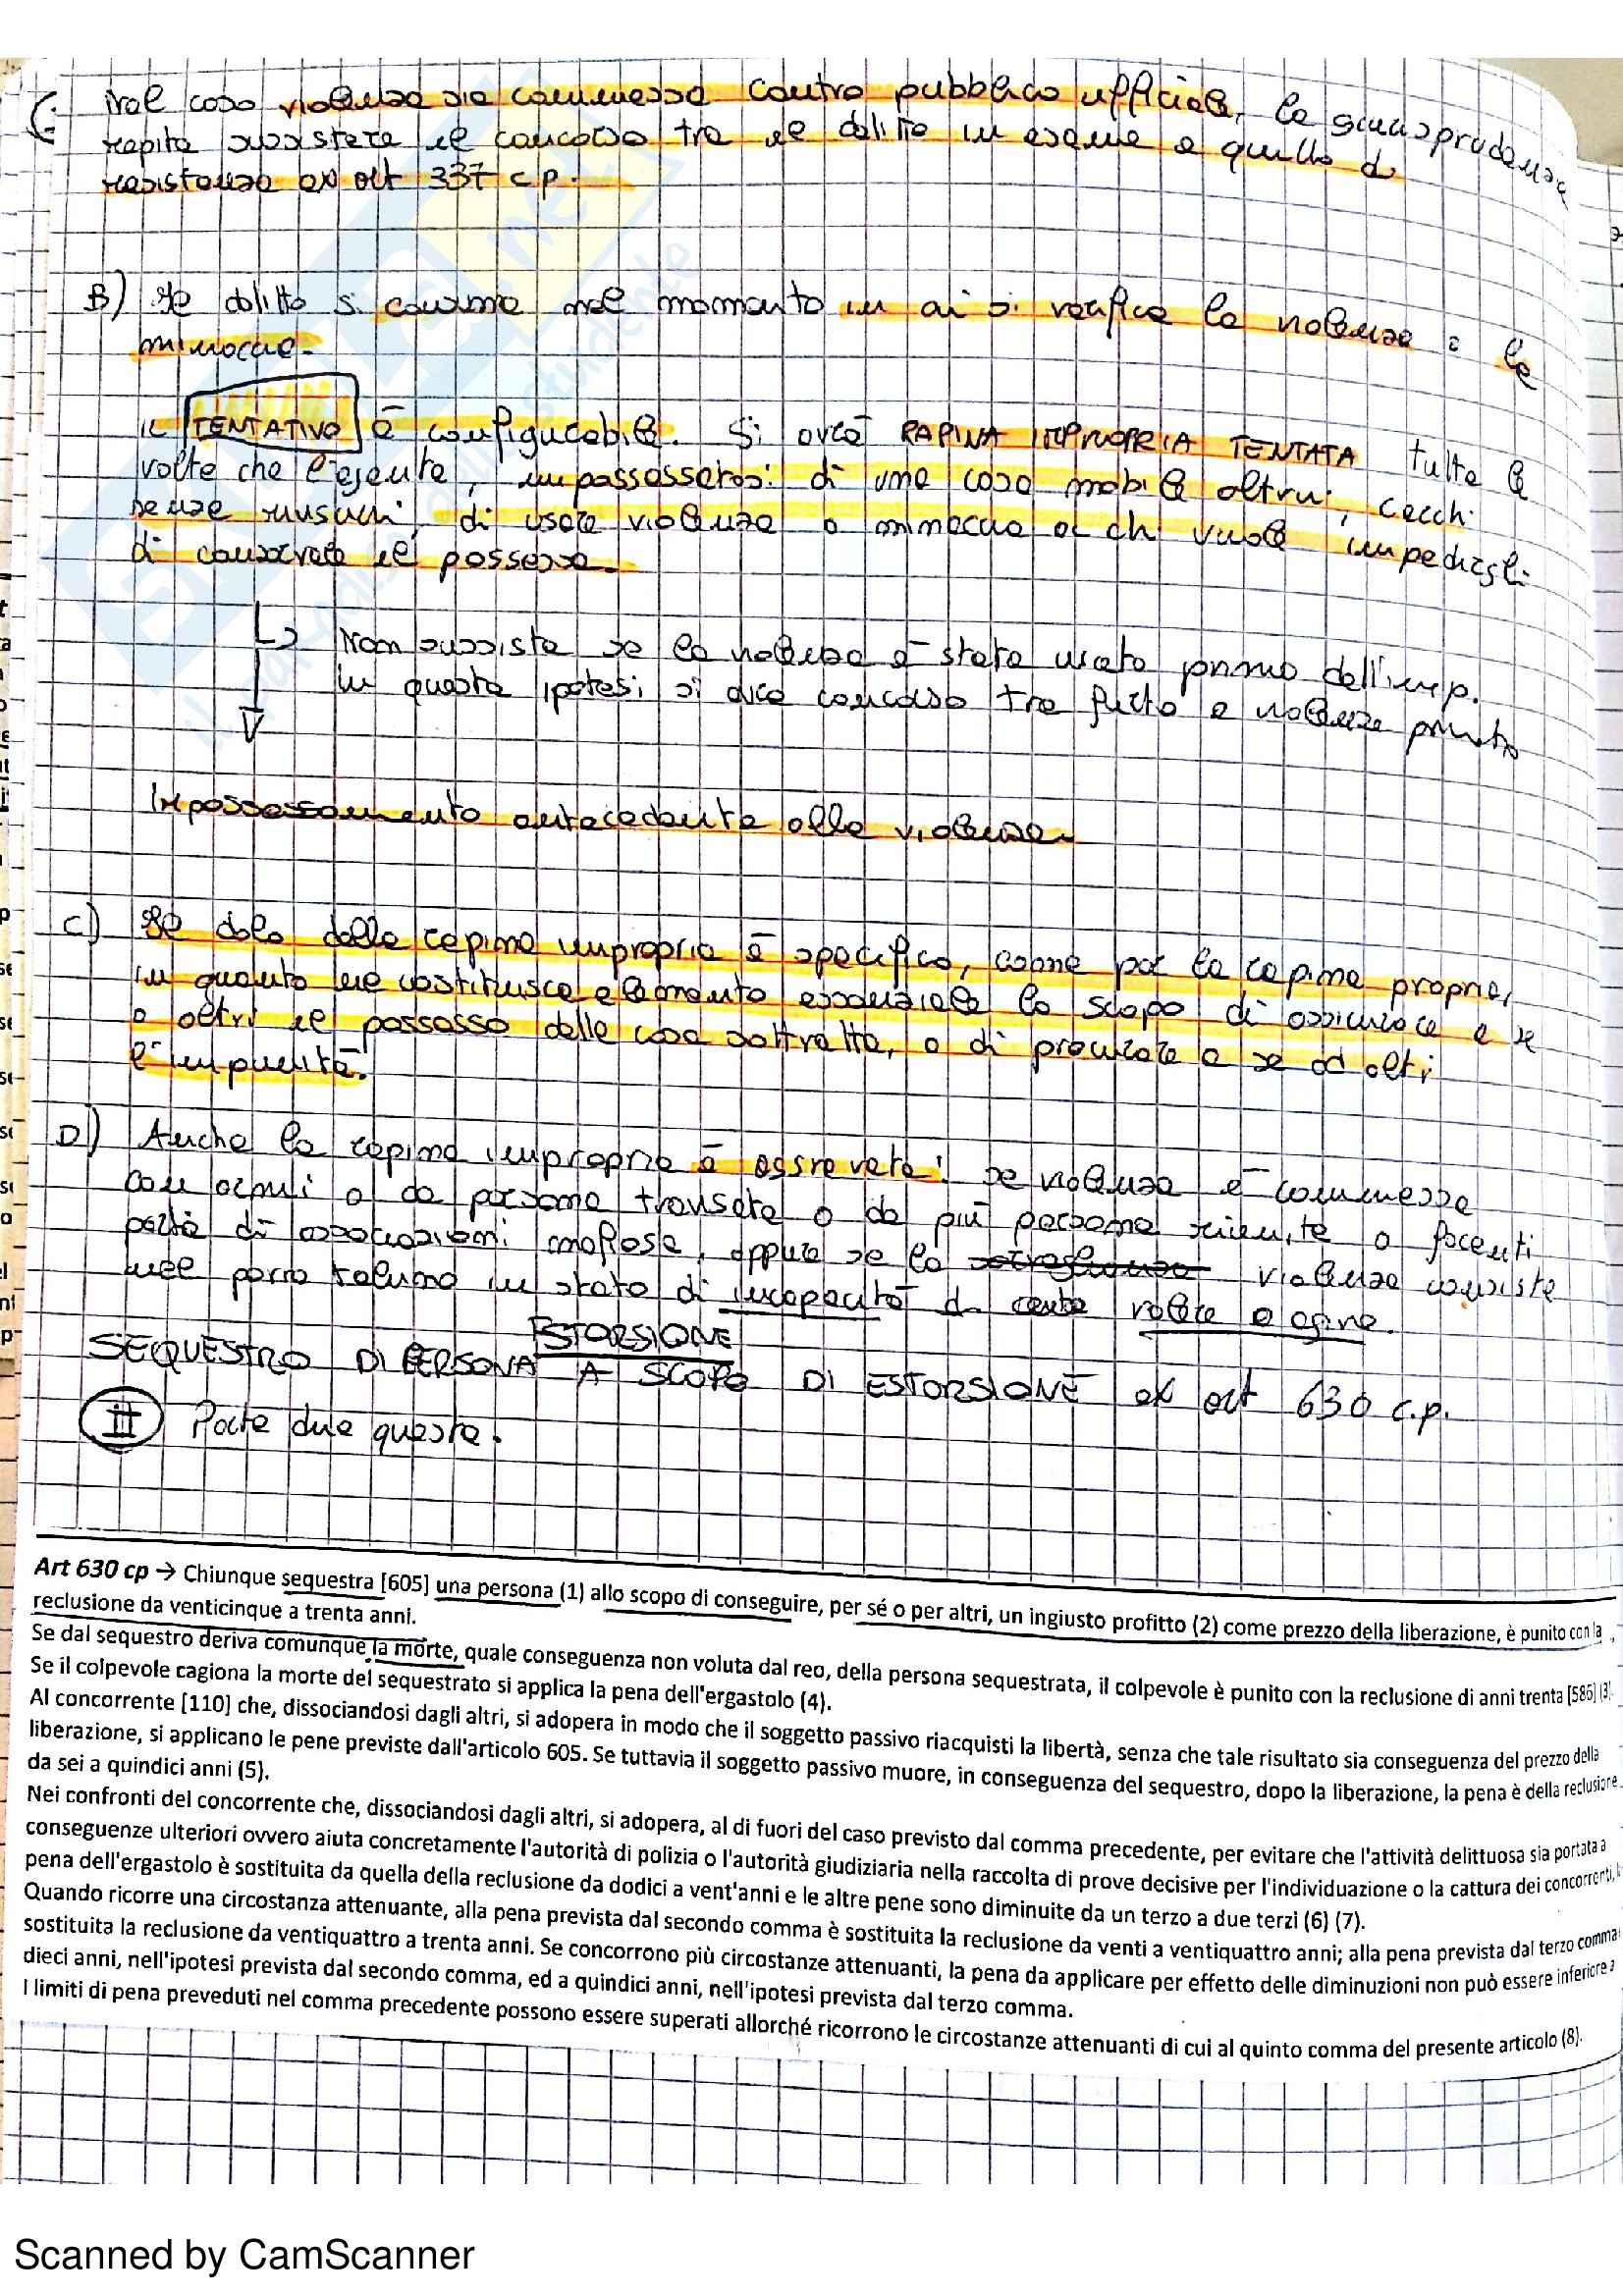 Nel caso violenza sia commessa contro pubblico ufficiale, la giurisprudenza
reputa sussistere il concorso tra il delitto in esame e quello di
resistenza ex art 337 c.p.
B) Il delitto si consuma nel momento in cui si verifica la violenza o la
minaccia.
Il TENTATIVO è configurabile. Si avrà RAPINA IMPROPRIA TENTATA tutte le
volte che l'agente, impossessatosi di una cosa mobile altrui, cerchi
senza riuscirvi, di usare violenza o minaccia a chi vuole impedirgli
di conservare il possesso.
↳ Non sussiste se la violenza è stata usata prima dell'imp.
In questa ipotesi si avrà concorso tra furto e violenza privata
Impossessamento antecedente alla violenza
C) Il dolo della rapina impropria è specifico, come per la rapina propria,
in quanto ne costituisce elemento essenziale lo scopo di assicurare a se
o altri il possesso della cosa sottratta, o di procurare a se od altri
l'impunità.
D) Anche la rapina impropria è aggravata! se violenza è commessa
con armi o da persona travisata o da più persone riunite o facenti
parte di associazioni mafiose, oppure se la violenza consiste
nel porre taluno in stato di incapacità di volere o agire.
ESTORSIONE
SEQUESTRO DI PERSONA A SCOPO DI ESTORSIONE ex art 630 c.p.
II Parte due questa.
Art 630 cp → Chiunque sequestra [605] una persona (1) allo scopo di conseguire, per sé o per altri, un ingiusto profitto (2) come prezzo della liberazione, è punito con la
reclusione da venticinque a trenta anni.
Se dal sequestro deriva comunque la morte, quale conseguenza non voluta dal reo, della persona sequestrata, il colpevole è punito con la reclusione di anni trenta [586] (3).
Se il colpevole cagiona la morte del sequestrato si applica la pena dell'ergastolo (4).
Al concorrente [110] che, dissociandosi dagli altri, si adopera in modo che il soggetto passivo riacquisti la libertà, senza che tale risultato sia conseguenza del prezzo della
liberazione, si applicano le pene previste dall'articolo 605. Se tuttavia il soggetto passivo muore, in conseguenza del sequestro, dopo la liberazione, la pena è della reclusione
da sei a quindici anni (5).
Nei confronti del concorrente che, dissociandosi dagli altri, si adopera, al di fuori del caso previsto dal comma precedente, per evitare che l'attività delittuosa sia portata a
conseguenze ulteriori ovvero aiuta concretamente l'autorità di polizia o l'autorità giudiziaria nella raccolta di prove decisive per l'individuazione o la cattura dei concorrenti,
pena dell'ergastolo è sostituita da quella della reclusione da dodici a vent'anni e le altre pene sono diminuite da un terzo a due terzi (6) (7).
Quando ricorre una circostanza attenuante, alla pena prevista dal secondo comma è sostituita la reclusione da venti a ventiquattro anni; alla pena prevista dal terzo comma
sostituita la reclusione da ventiquattro a trenta anni. Se concorrono più circostanze attenuanti, la pena da applicare per effetto delle diminuzioni non può essere inferiore a
dieci anni, nell'ipotesi prevista dal secondo comma, ed a quindici anni, nell'ipotesi prevista dal terzo comma.
I limiti di pena preveduti nel comma precedente possono essere superati allorché ricorrono le circostanze attenuanti di cui al quinto comma del presente articolo (8).
Scanned by CamScanner